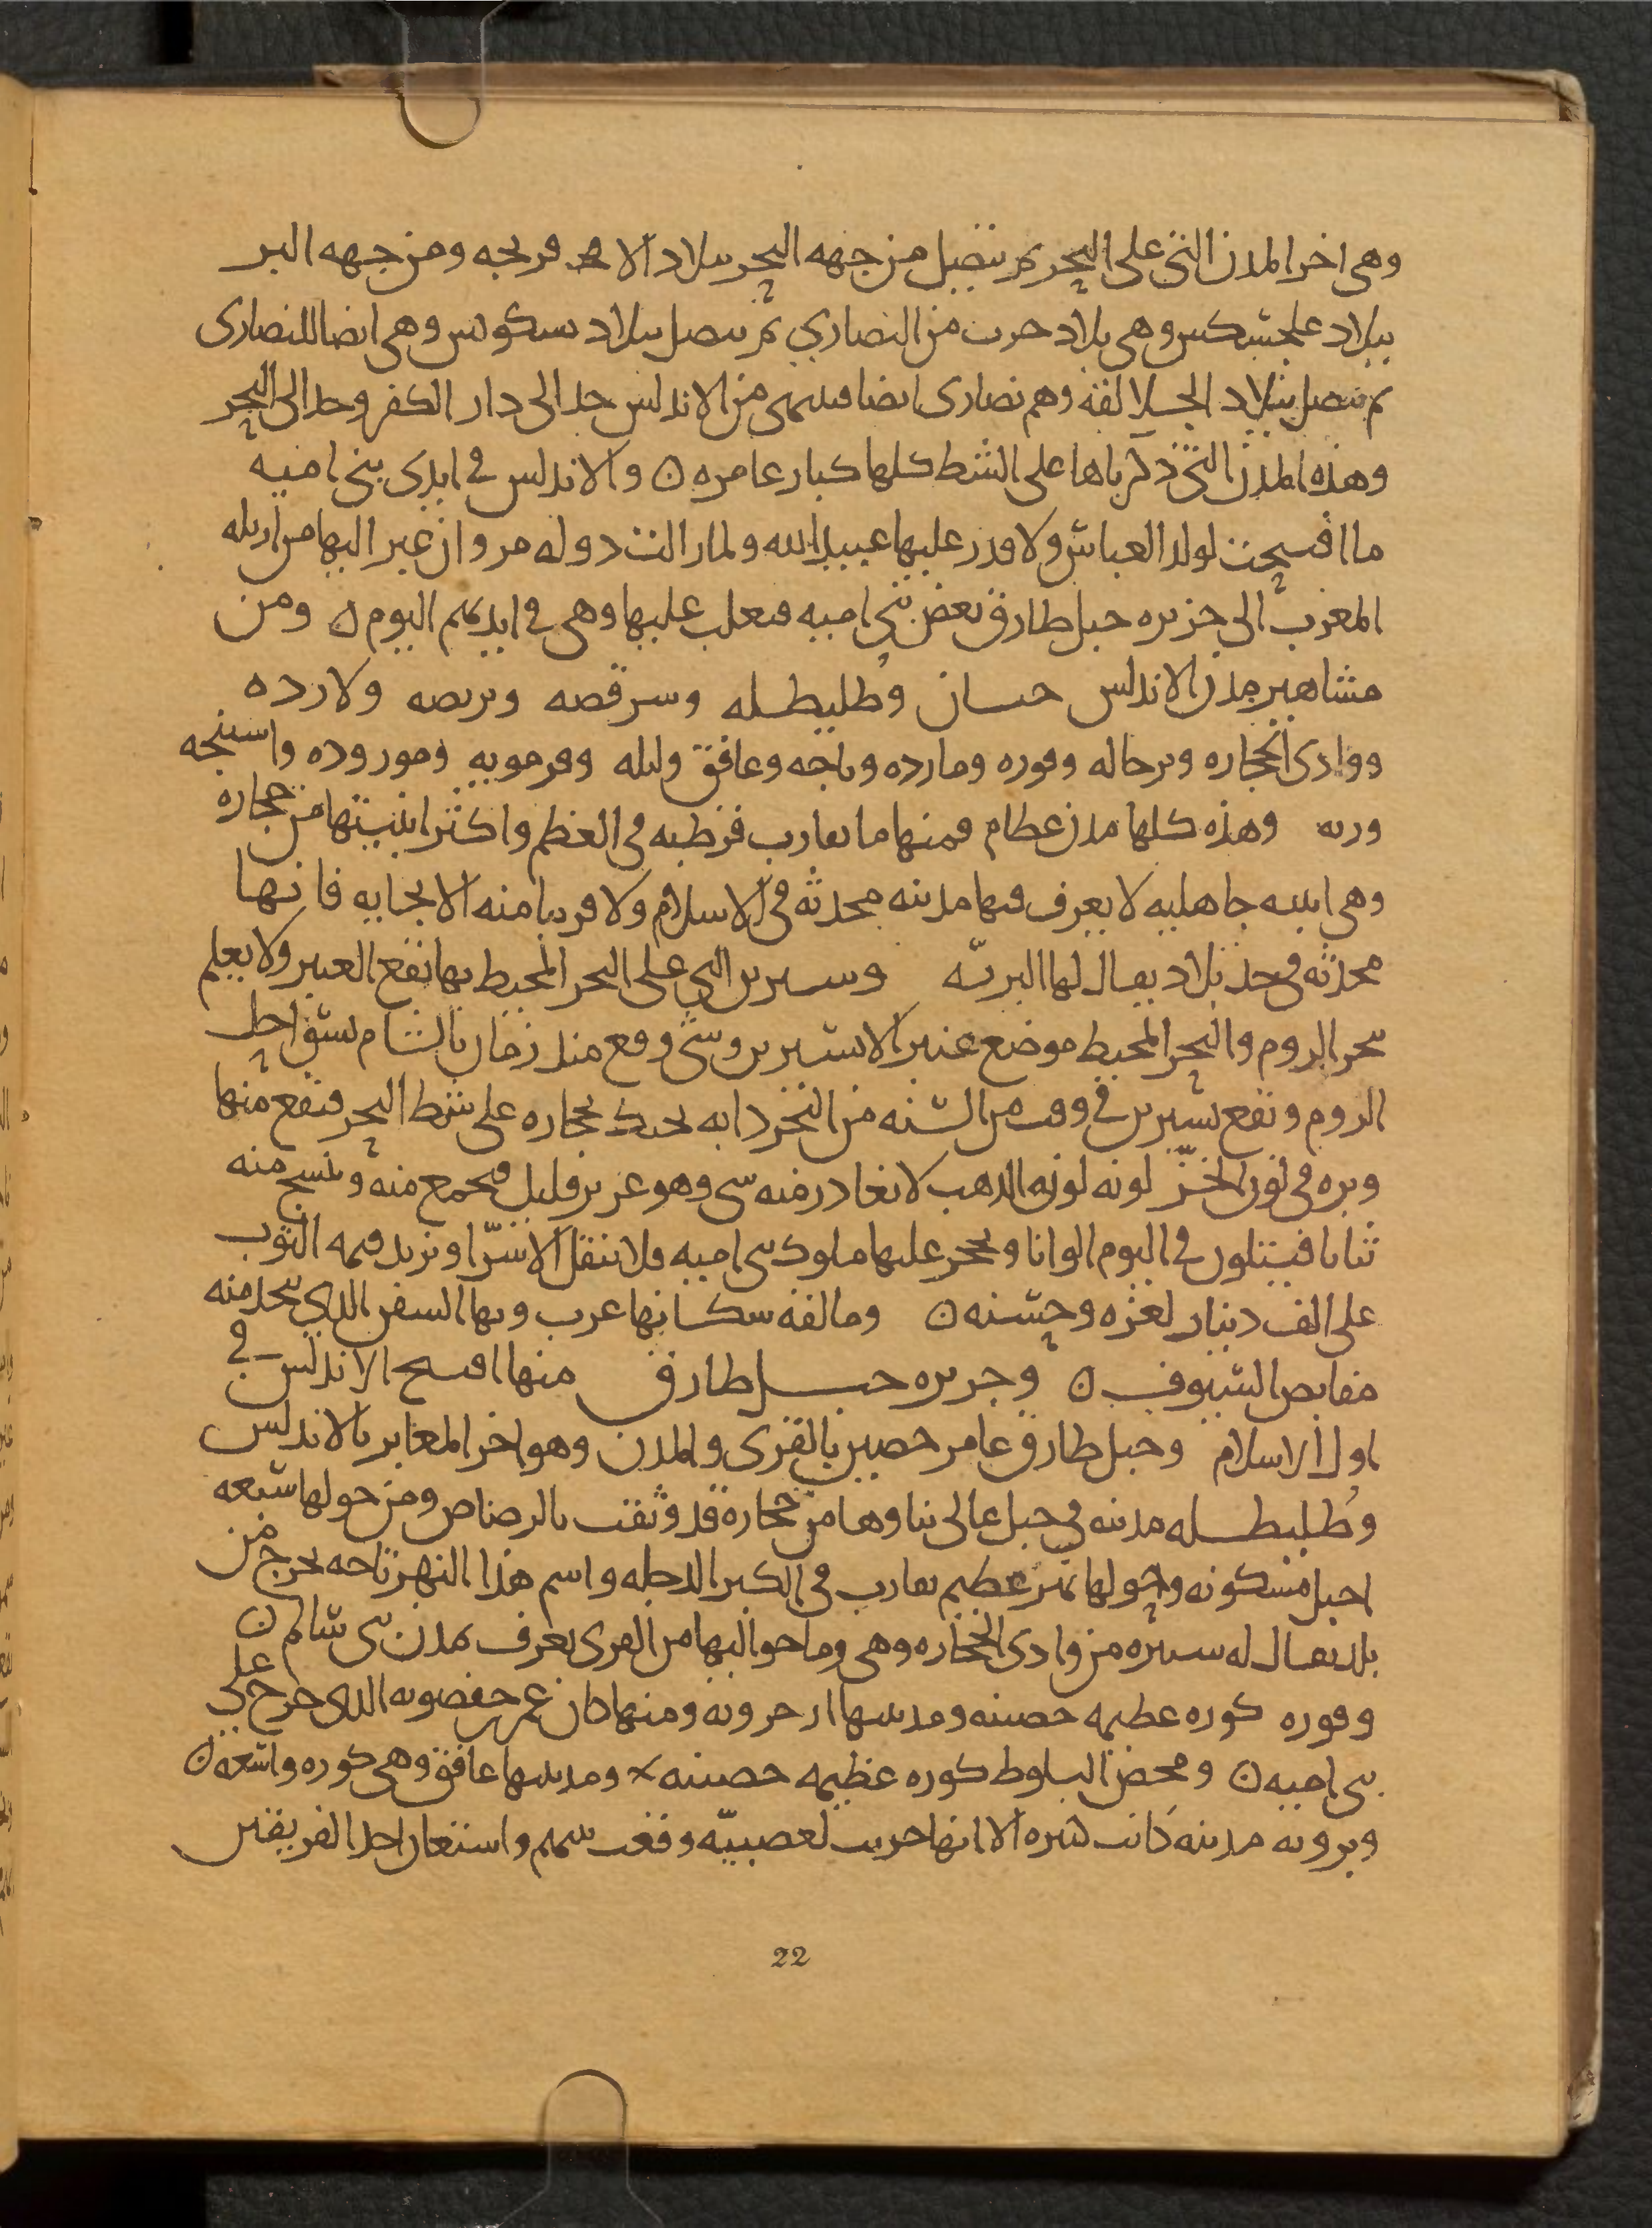 وهى اخر المدن التى على البحر ثم تتصل من جهه البحر ببلاد الافرنجه ومن جهه البر
ببلاد علجشكس وهى بلاد حرب من النصارى ثم تتصل ببلاد بسكونس وهى ايضا للنصارى
ثم تتصل ببلاد الجلالقه وهم نصارى ايضا فسمى من الاندلس حد الى دار الكفر وحد الى البحر
وهذه المدن التى ذكرناها على الشط كلها كبار عامره ن والاندلس فى ايدى بنى اميه
ما افتتحت لولد العباس ولا قدر عليها عبيد الله ولما زالت دوله مروان عبر اليها من ازيله
المغرب الى جزيره جبل طارق بعض بنى اميه فتغلب عليها وهى فى ايديهم اليوم ن ومن
مشاهير مدن الاندلس جيان وطليطله وسرقصه وبربصه ولارده
ووادى الحجاره وترجاله وقوره ومارده وباجه وغافق ولبله وقرمويه ومورورده واستجه
وريه وهذه كلها مدن عظام فمنها ما يقارب قرطبه فى العظم واكثر ابنيتها من حجاره
وهى ابنيه جاهليه لا يعرف فيها مدينه محدثه فى الاسلام ولا قريبا منه الا بجايه فانها
محدثه فى حد بلاد يقال لها البريّه وشنترين التى على البحر المحيط بها يقع العنبر ولا يعلم
ببحر الروم والبحر المحيط موضع عنبر الا شنترين وشى وقع منذ زمان بالشام بسواحل
الروم وتقع بشنترين فى وقت من السنه من البحر دابه تحتك بحجاره على شط البحر فيقع منها
وبره فى لون الخزّ لونه لون الذهب لا يغادر منه شى وهو عزيز قليل فيجمع منه وينسج منه
ثيابا فيتلون فى اليوم الوانا ويحجر عليها ملوك بنى اميه فلا تنقل الا سرّا وتزيد قيمه الثوب
على الف دينار لعزه وحسنه ن ومالقه سكانها عرب وبها السفن الذى يتخذ منه
مقابض السيوف ن وجزيره جبل طارق منها افتتح الاندلس فى
اول الاسلام وجبل طارق عامر حصين بالقرى والمدن وهو اخر المعابر بالاندلس
وطليطله مدينه فى جبل عالى بناوها من حجاره قد وثقت بالرصاص ومن حولها سبعه
اجبل مسكونه وحولها نهر عظيم يقارب فى الكبر الدجله واسم هذا النهر تاجه يخرج من
بلد يقال له سبتره من وادى الحجاره وهى وما حواليها من القرى تعرف بمدن بنى سالم ن
وقوره كوره عظيمه حصينه ومدينتها ارجرونه ومنها كان عمر بن حفصونه الذى خرج على
بنى اميه ن وفحص البلوط كوره عظيمه حصينه ومدينتها غافق وهى كوره واسعه ن
وبرونه مدينه كانت كبيره الا انها خربت لعصبيّه وقعت بينهم واستعان احد الفريقين
22